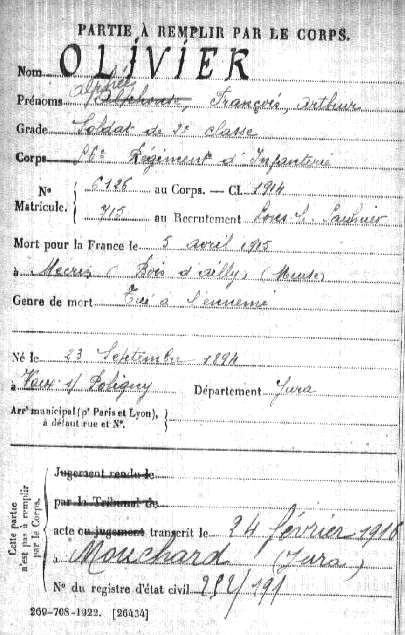 PARTIE À REMPLIR PAR LE CORPS.
Nom OLIVIER
Prénoms Alphée Alphonse, François, Arthur
Grade Soldat de 2e classe
Corps Régiment d'Infanterie
No 6126 au Corps. — Cl. 1914
Matricule. 715 au Recrutement Lons-l-Saunier
Mort pour la France le 5 avril 1915
à Mecrin (Bois d'Ailly, (Meuse)
Genre de mort Tué à l'ennemi
Né le 23 Septembre 1894
à Vaux s/ Poligny Département Jura
Arrt municipal (pr Paris et Lyon),
à défaut rue et No.
Cette partie
n'est pas à remplir
par le Corps.
Jugement rendu le
par le Tribunal de
acte ou jugement transcrit le 24 février 1916
à Mouchard (Jura)
No du registre d'état civil 232/191
269-708-1922. [26434]